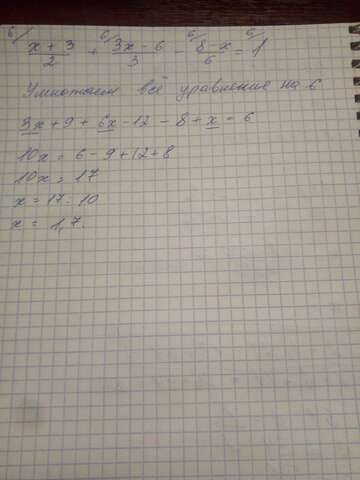 6/ (x + 3)/2 + 6/ (3x - 6)/3 - 6/ (8 - x)/6 = 6/ 1
Умножаем всё уравнение на 6
3x + 9 + 6x - 12 - 8 + x - 6
10x = 6 - 9 + 12 + 8
10x = 17
x = 17 : 10
x = 1,7.